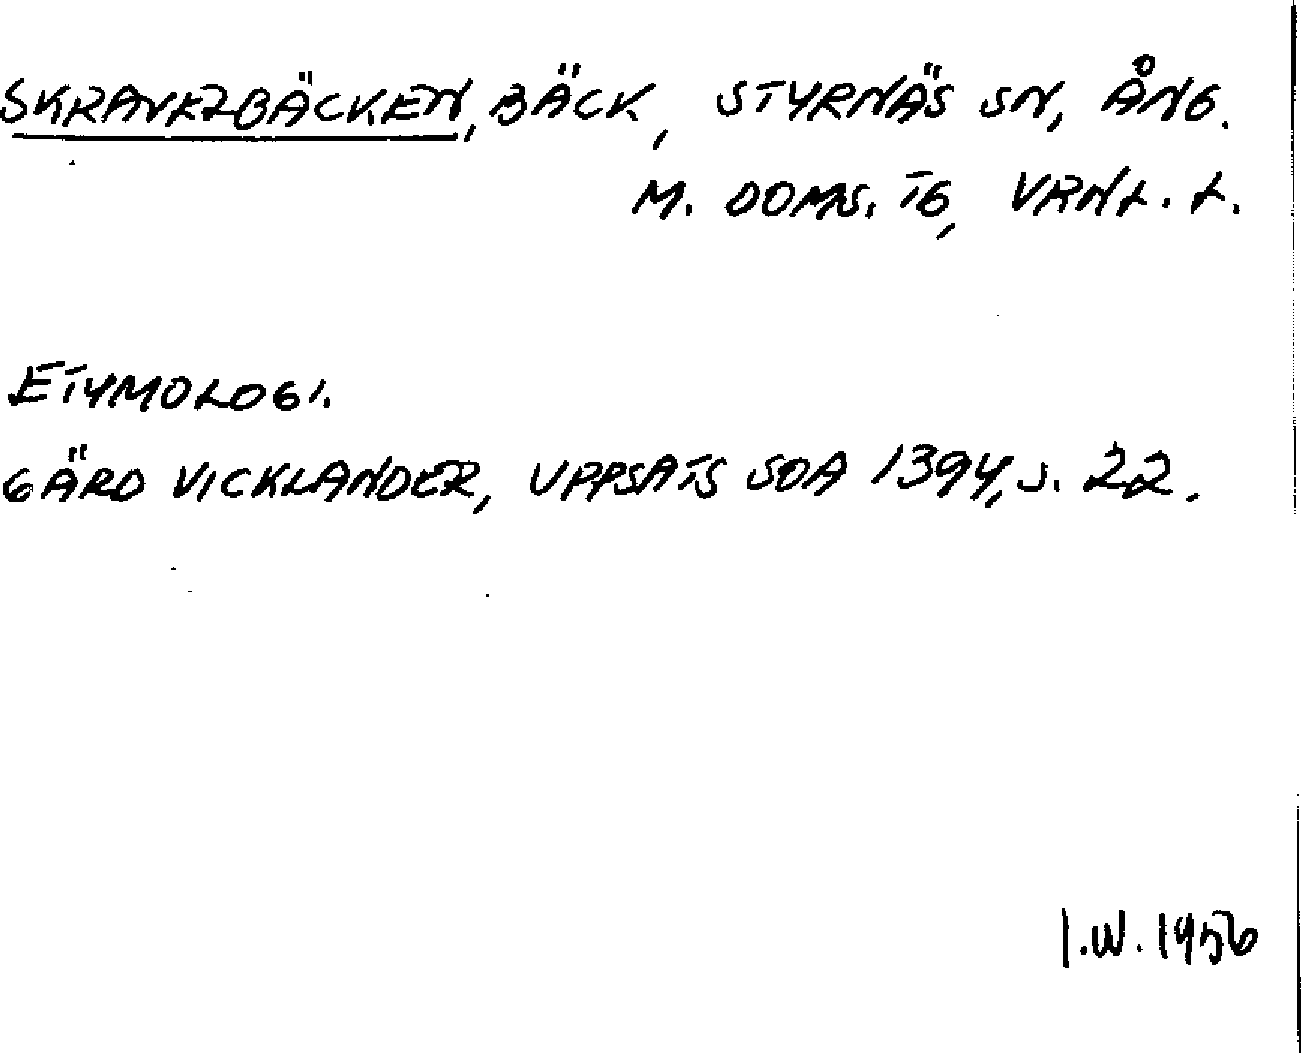 SKRAVELBÄCKEN, BÄCK, STYRNÄS SN, ÅNG.
M. DOMS. TG, VRNL. L.
ETYMOLOGI.
GÄRD VICKLANDER, UPPSATS SOA 1394, S. 22.
I.W. 1956